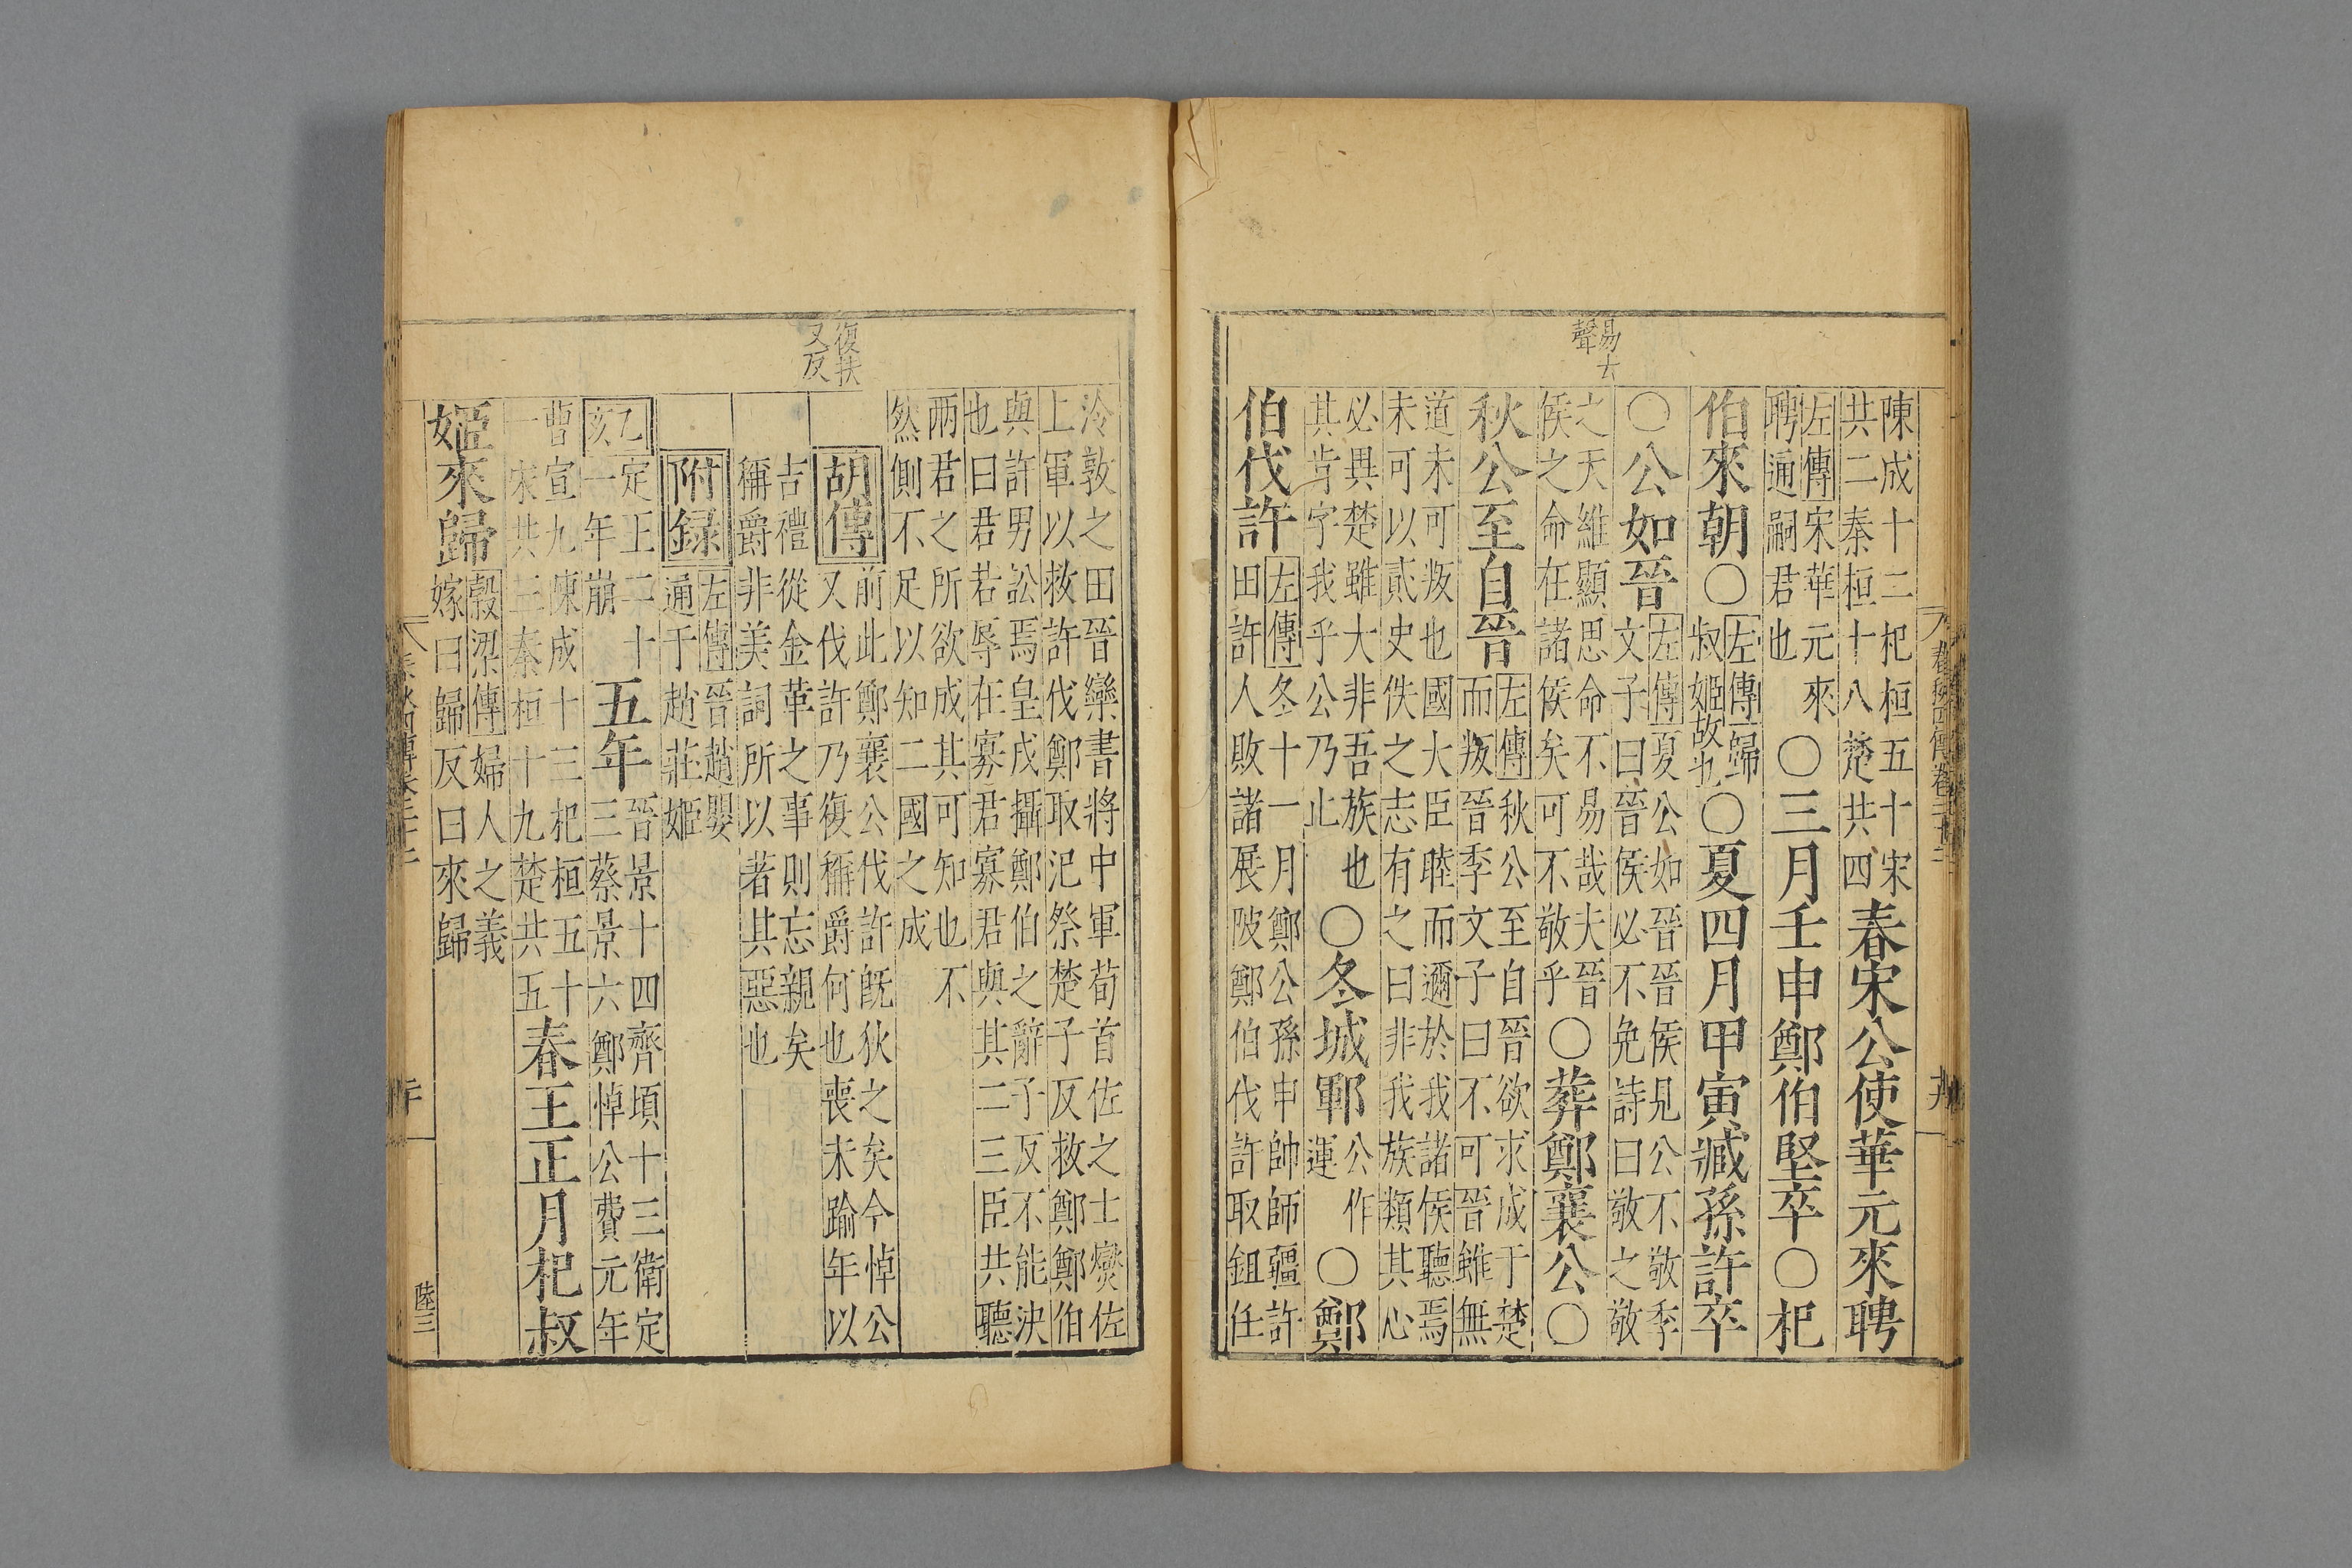 易去
聲
陳成十二杞桓五十宋
共二秦桓十八楚共四
春宋公使華元來聘
左傳宋華元來
聘通嗣君也
〇三月壬申鄭伯堅卒〇杞
伯來朝〇
左傳歸
叔姬故也
〇夏四月甲寅臧孫許卒
〇公如晉
左傳夏公如晉晉侯見公不敬季
文子曰晉侯必不免詩曰敬之敬
之天維顯思命不易哉夫晉
侯之命在諸侯矣可不敬乎
〇葬鄭襄公〇
秋公至自晉
左傳秋公至自晉欲求成于楚
而叛晉季文子曰不可晉雖無
道未可叛也國大臣睦而邇於我諸侯聽焉
未可以貳史佚之志有之曰非我族類其心
必異楚雖大非吾族也
其肯字我乎公乃止
〇冬城鄆
公作
運
〇鄭
伯伐許
左傳冬十一月鄭公孫申帥師疆許
田許人敗諸展陂鄭伯伐許取鉏任
復扶
又反
泠敦之田晉欒書將中軍荀首佐之士燮佐
上軍以救許伐鄭取汜祭楚子反救鄭鄭伯
與許男訟焉皇戌攝鄭伯之辭子反不能決
也曰君若辱在寡君寡君與其二三臣共聽
兩君之所欲成其可知也不
然側不足以知二國之成
胡傳
前此鄭襄公伐許既狄之矣今悼公
又伐許乃復稱爵何也喪未踰年以
吉禮從金革之事則忘親矣
稱爵非美詞所以著其惡也
附録
左傳晉趙嬰
通于趙莊姬
乙亥
定王二十
一年崩
五年
晉景十四齊頃十三衛定
三蔡景六鄭悼公費元年
曹宣九陳成十三杞桓五十
一宋共三秦桓十九楚共五
春王正月杞叔
姬來歸
穀梁傳婦人之義
嫁曰歸反曰來歸
陸三